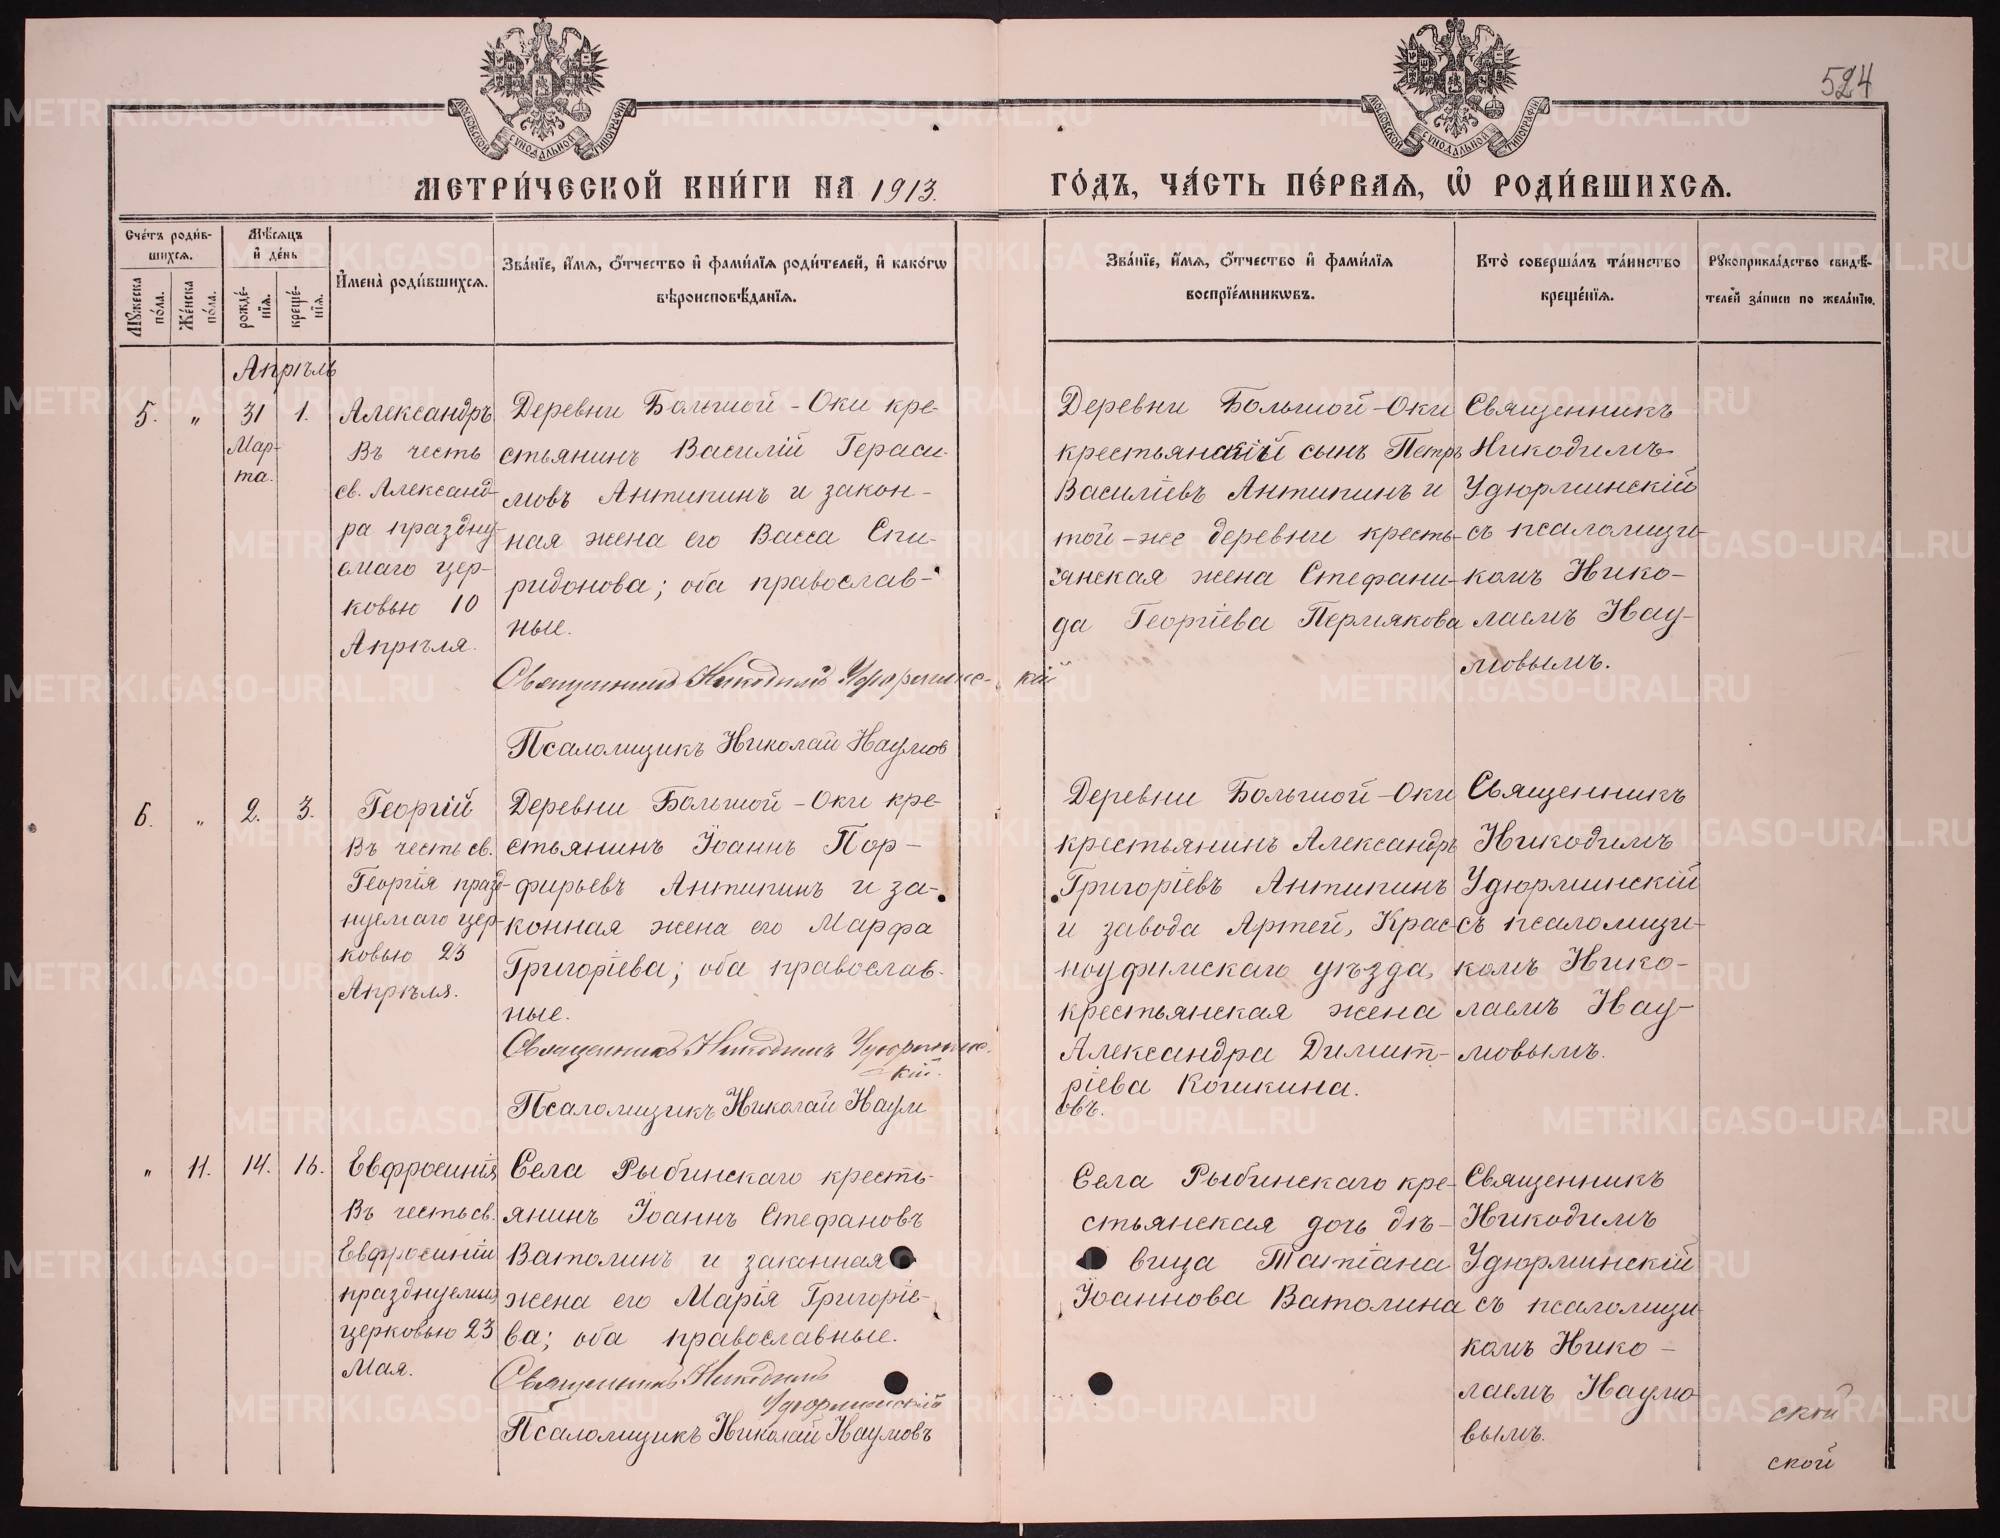 524
МЕТРИ́ЧЕСКОЙ КНИ́ГИ НА 1913.
ГО́ДЪ, ЧА́СТЬ ПЕ́РВАѦ, Ѡ҆ РОДИ́ВШИХСѦ.
МОСКОВСКОЙ СѴНОДАЛЬНОЙ ТИПОГРАФІИ
МОСКОВСКОЙ СѴНОДАЛЬНОЙ ТИПОГРАФІИ
Сче́тъ роди́в-
шихсѧ.
Мꙋ́жеска по́ла.
Же́нска по́ла.
Мѣ́сѧцъ
и҆ де́нь
рожде́-
нїѧ.
креще́-
нїѧ.
И҆мена̀ роди́вшихсѧ.
Зва́нїе, и҆́мѧ, ѻ҆́тчество и҆ фами́лїѧ роди́телей, и҆ како́гѡ
вѣроисповѣ́данїѧ.
Зва́нїе, и҆́мѧ, ѻ҆́тчество и҆ фами́лїѧ
воспрїе́мникѡвъ.
Кто̀ соверша́лъ та́инство
креще́нїѧ.
Рꙋкоприкла́дство свидѣ́-
телей за́писи по жела́нїю.
Апрѣль
5.
„
31
Мар-
та.
1.
Александръ
Въ честь
св. Александ-
ра праздну-
емаго цер-
ковью 10
Апрѣля.
Деревни Большой-Оки кре-
стьянинъ Василій Гераси-
мовъ Антипинъ и закон-
ная жена его Васса Спи-
ридонова; оба православ-
ные.
Священникъ Никодимъ Удюрминс-кій
Псаломщикъ Николай Наумов
Деревни Большой-Оки
крестьянскій сынъ Петръ
Василіевъ Антипинъ и
той-же деревни кресть-
янская жена Стефани-
да Георгіева Пермякова
Священникъ
Никодимъ
Удюрминскій
съ псаломщи-
комъ Нико-
лаемъ Нау-
мовымъ.
6.
„
2.
3.
Георгій
Въ честь св.
Георгія празд-
нуемаго цер-
ковью 23
Апрѣля.
Деревни Большой-Оки кре-
стьянинъ Іоаннъ Пор-
фирьевъ Антипинъ и за-
конная жена его Марфа
Григоріева; оба православ-
ные.
Священникъ Никодимъ Удюрминс-
кій.
Псаломщикъ Николай Наум
овъ.
Деревни Большой-Оки
крестьянинъ Александръ
Григоріевъ Антипинъ
и завода Артей, Крас-
ноуфимскаго уѣзда,
крестьянская жена
Александра Димит-
ріева Кошкина.
Священникъ
Никодимъ
Удюрминскій
съ псаломщи-
комъ Нико-
лаемъ Нау-
мовымъ.
„
11.
14.
16.
Евфросинія
Въ честь св.
Евфросиніи
празднуемыя
церковью 23
Мая.
Села Рыбинскаго кресть-
янинъ Іоаннъ Стефановъ
Ватолинъ и законная
жена его Марія Григоріе-
ва; оба православные.
Священникъ Никодимъ
Удюрминскій
Псаломщикъ Николай Наумовъ
Села Рыбинскаго кре-
стьянская дочь дѣ-
вица Татіана
Іоаннова Ватолина
Священникъ
Никодимъ
Удюрминскій
съ псаломщи-
комъ Нико-
лаемъ Наумо
вымъ.
ской
ской